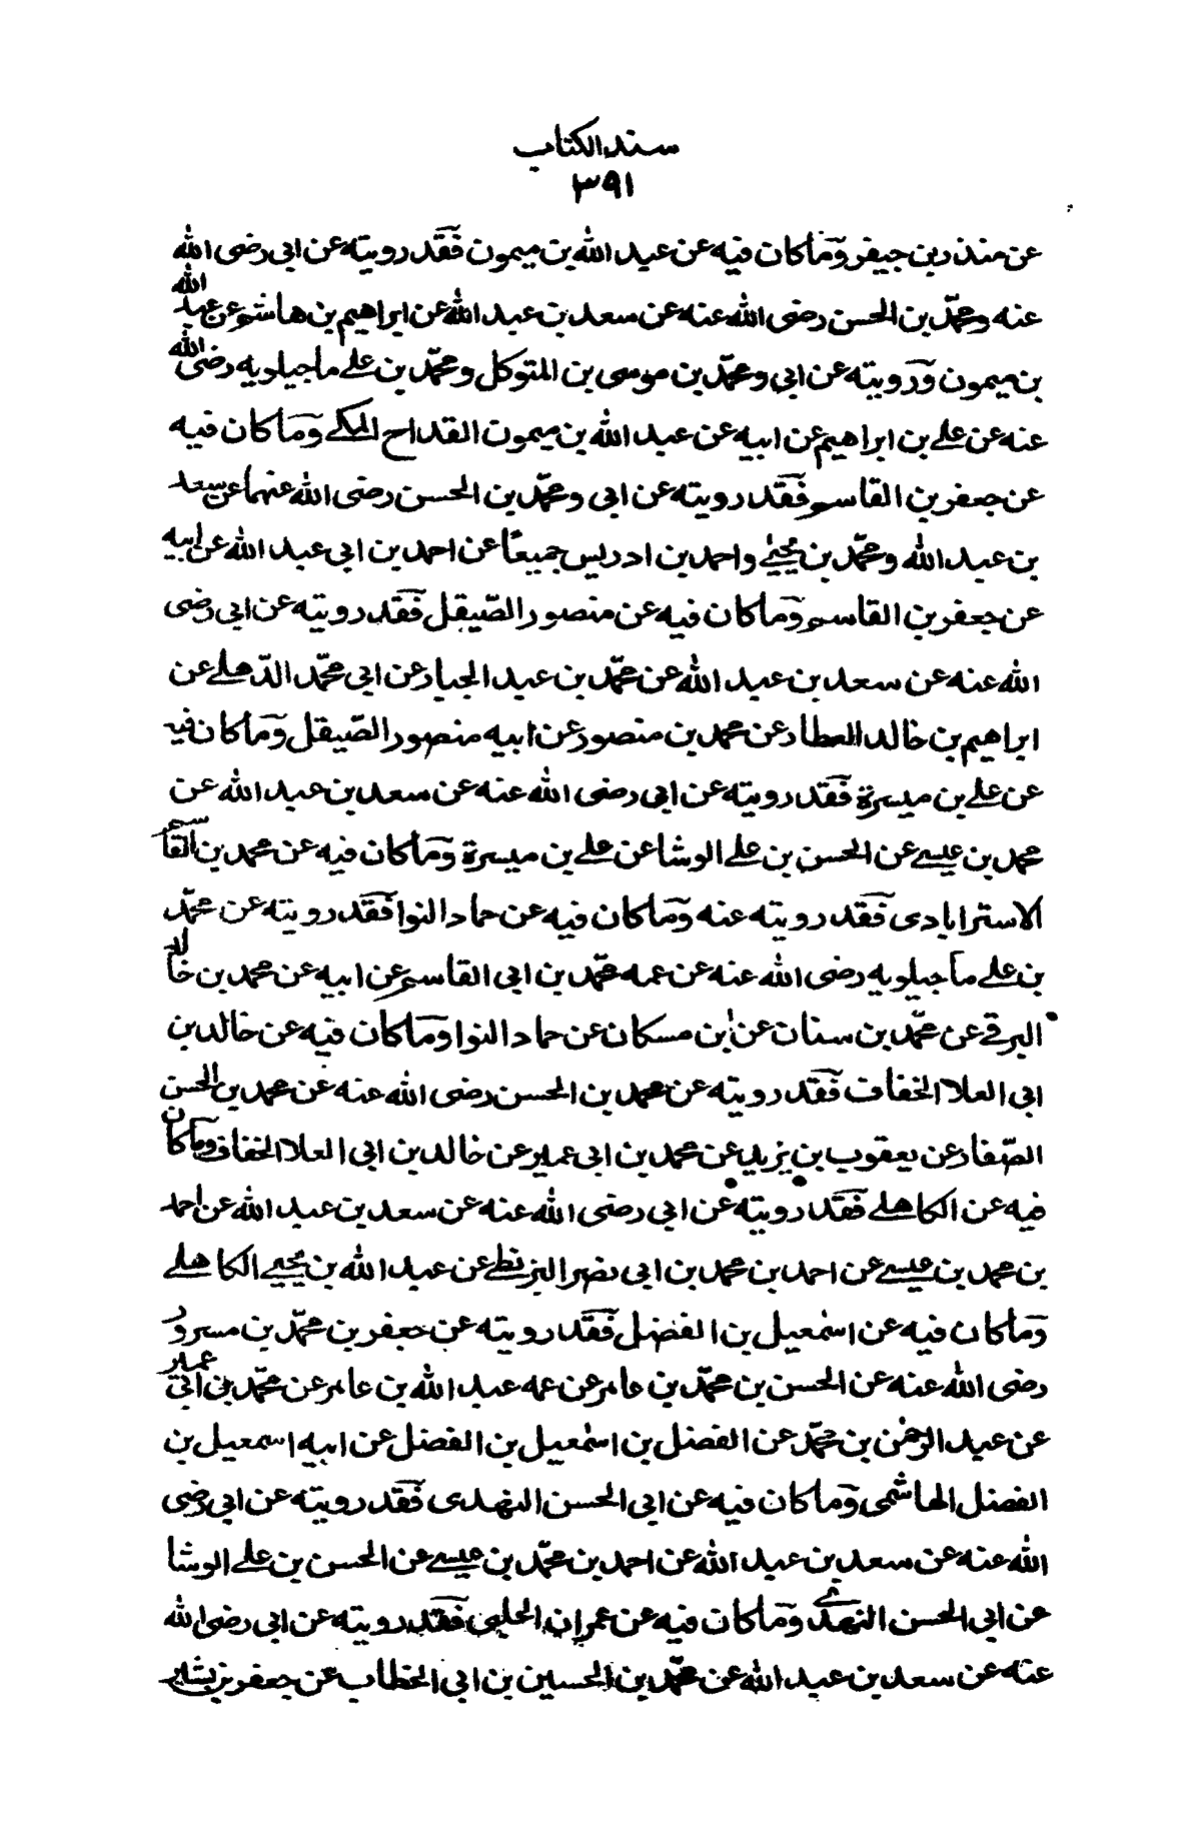 سند الكتاب
٣٩١
عن منذر بن جيفر وما كان فيه عن عبد الله بن ميمون فقد رويته عن ابى رضى الله
عنه ومحمّد بن الحسن رضى الله عنه عن سعد بن عبد الله عن ابراهيم بن هاشم عن عبد الله
بن ميمون ورويته عن ابى ومحمّد بن موسى بن المتوكل ومحمّد بن على ماجيلويه رضى الله
عنه عن على بن ابراهيم عن ابيه عن عبد الله بن ميمون القداح المكى وما كان فيه
عن جعفر بن القاسم فقد رويته عن ابى ومحمّد بن الحسن رضى الله عنهما عن سعد
بن عبد الله ومحمّد بن يحيى واحمد بن ادريس جميعًا عن احمد بن ابى عبد الله عن ابيه
عن جعفر بن القاسم وما كان فيه عن منصور الصّيقل فقد رويته عن ابى رضى
الله عنه عن سعد بن عبد الله عن محمّد بن عبد الجبار عن ابى محمّد الذّهلى عن
ابراهيم بن خالد العطار عن محمد بن منصور عن ابيه منصور الصّيقل وما كان فيه
عن على بن ميسرة فقد رويته عن ابى رضى الله عنه عن سعد بن عبد الله عن
محمد بن عيسى عن الحسن بن على الوشا عن على بن ميسرة وما كان فيه عن محمد بن القاسم
الاسترابادى فقد رويته عنه وما كان فيه عن حماد النوا فقد رويته عن محمّد
بن على ماجيلويه رضى الله عنه عن عمه محمّد بن ابى القاسم عن ابيه عن محمد بن خالد
البرقى عن محمّد بن سنان عن ابن مسكان عن حماد النوا وما كان فيه عن خالد بن
ابى العلا الخفاف فقد رويته عن محمد بن الحسن رضى الله عنه عن محمد بن الحسن
الصّفار عن يعقوب بن يزيد عن محمد بن ابى عمير عن خالد بن ابى العلا الخفاف وما كان
فيه عن الكاهلى فقد رويته عن ابى رضى الله عنه عن سعد بن عبد الله عن احمد
بن محمد بن عيسى عن احمد بن محمد بن ابى نصر البزنطى عن عبد الله بن يحيى الكاهلى
وما كان فيه عن اسمعيل بن الفضل فقد رويته عن جعفر بن محمّد بن مسرور
رضى الله عنه عن الحسن بن محمّد بن عامر عن عمه عبد الله بن عامر عن محمّد بن ابى عمير
عن عبد الرحمن بن محمّد عن الفضل بن اسمعيل بن الفضل عن ابيه اسمعيل بن
الفضل الهاشمى وما كان فيه عن ابى الحسن النهدى فقد رويته عن ابى رضى
الله عنه عن سعد بن عبد الله عن احمد بن محمّد بن عيسى عن الحسن بن على الوشا
عن ابى الحسن النهدى وما كان فيه عن عمران الحلبى فقد رويته عن ابى رضى الله
عنه عن سعد بن عبد الله عن محمّد بن الحسين بن ابى الخطاب عن جعفر بن بشير